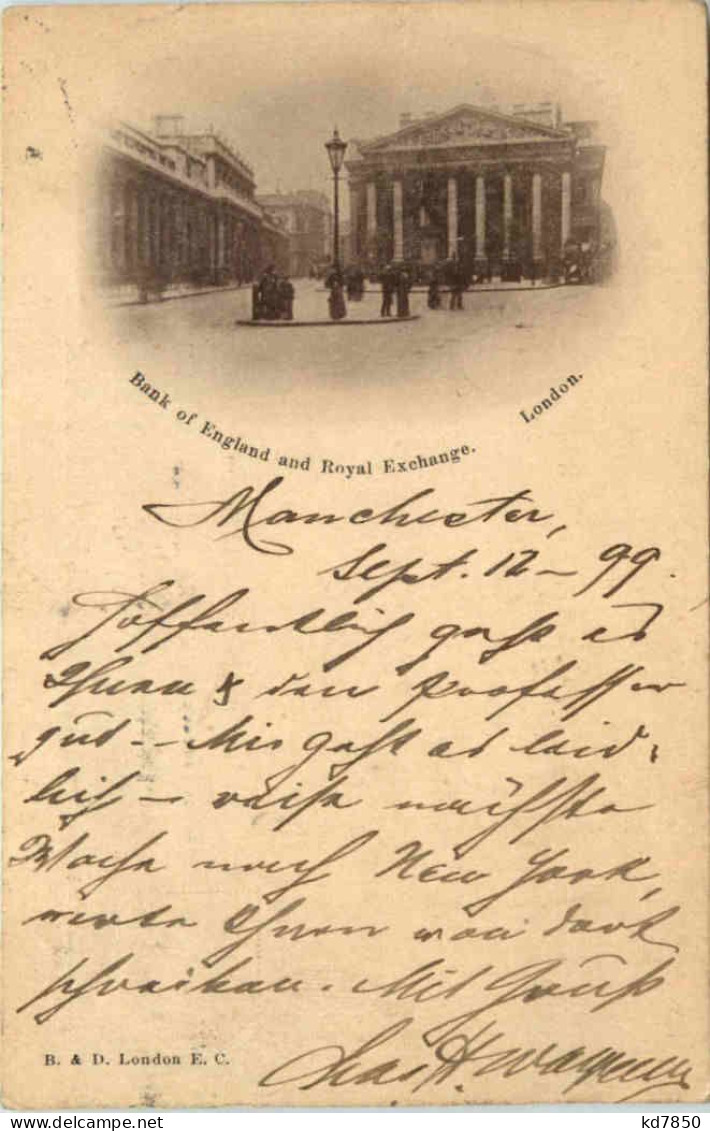 Bank of England and Royal Exchange. London.
Manchester,
Sept. 12 – 99.
Hoffentlich geht es
Ihnen & dem Professor
gut – Mir geht es leid-
lich – reise nächste
Woche nach New York,
werde Ihnen von dort
schreiben. Mit Gruß
Chas H Wagner
B. & D. London E. C.
kd7850
www.delcampe.net